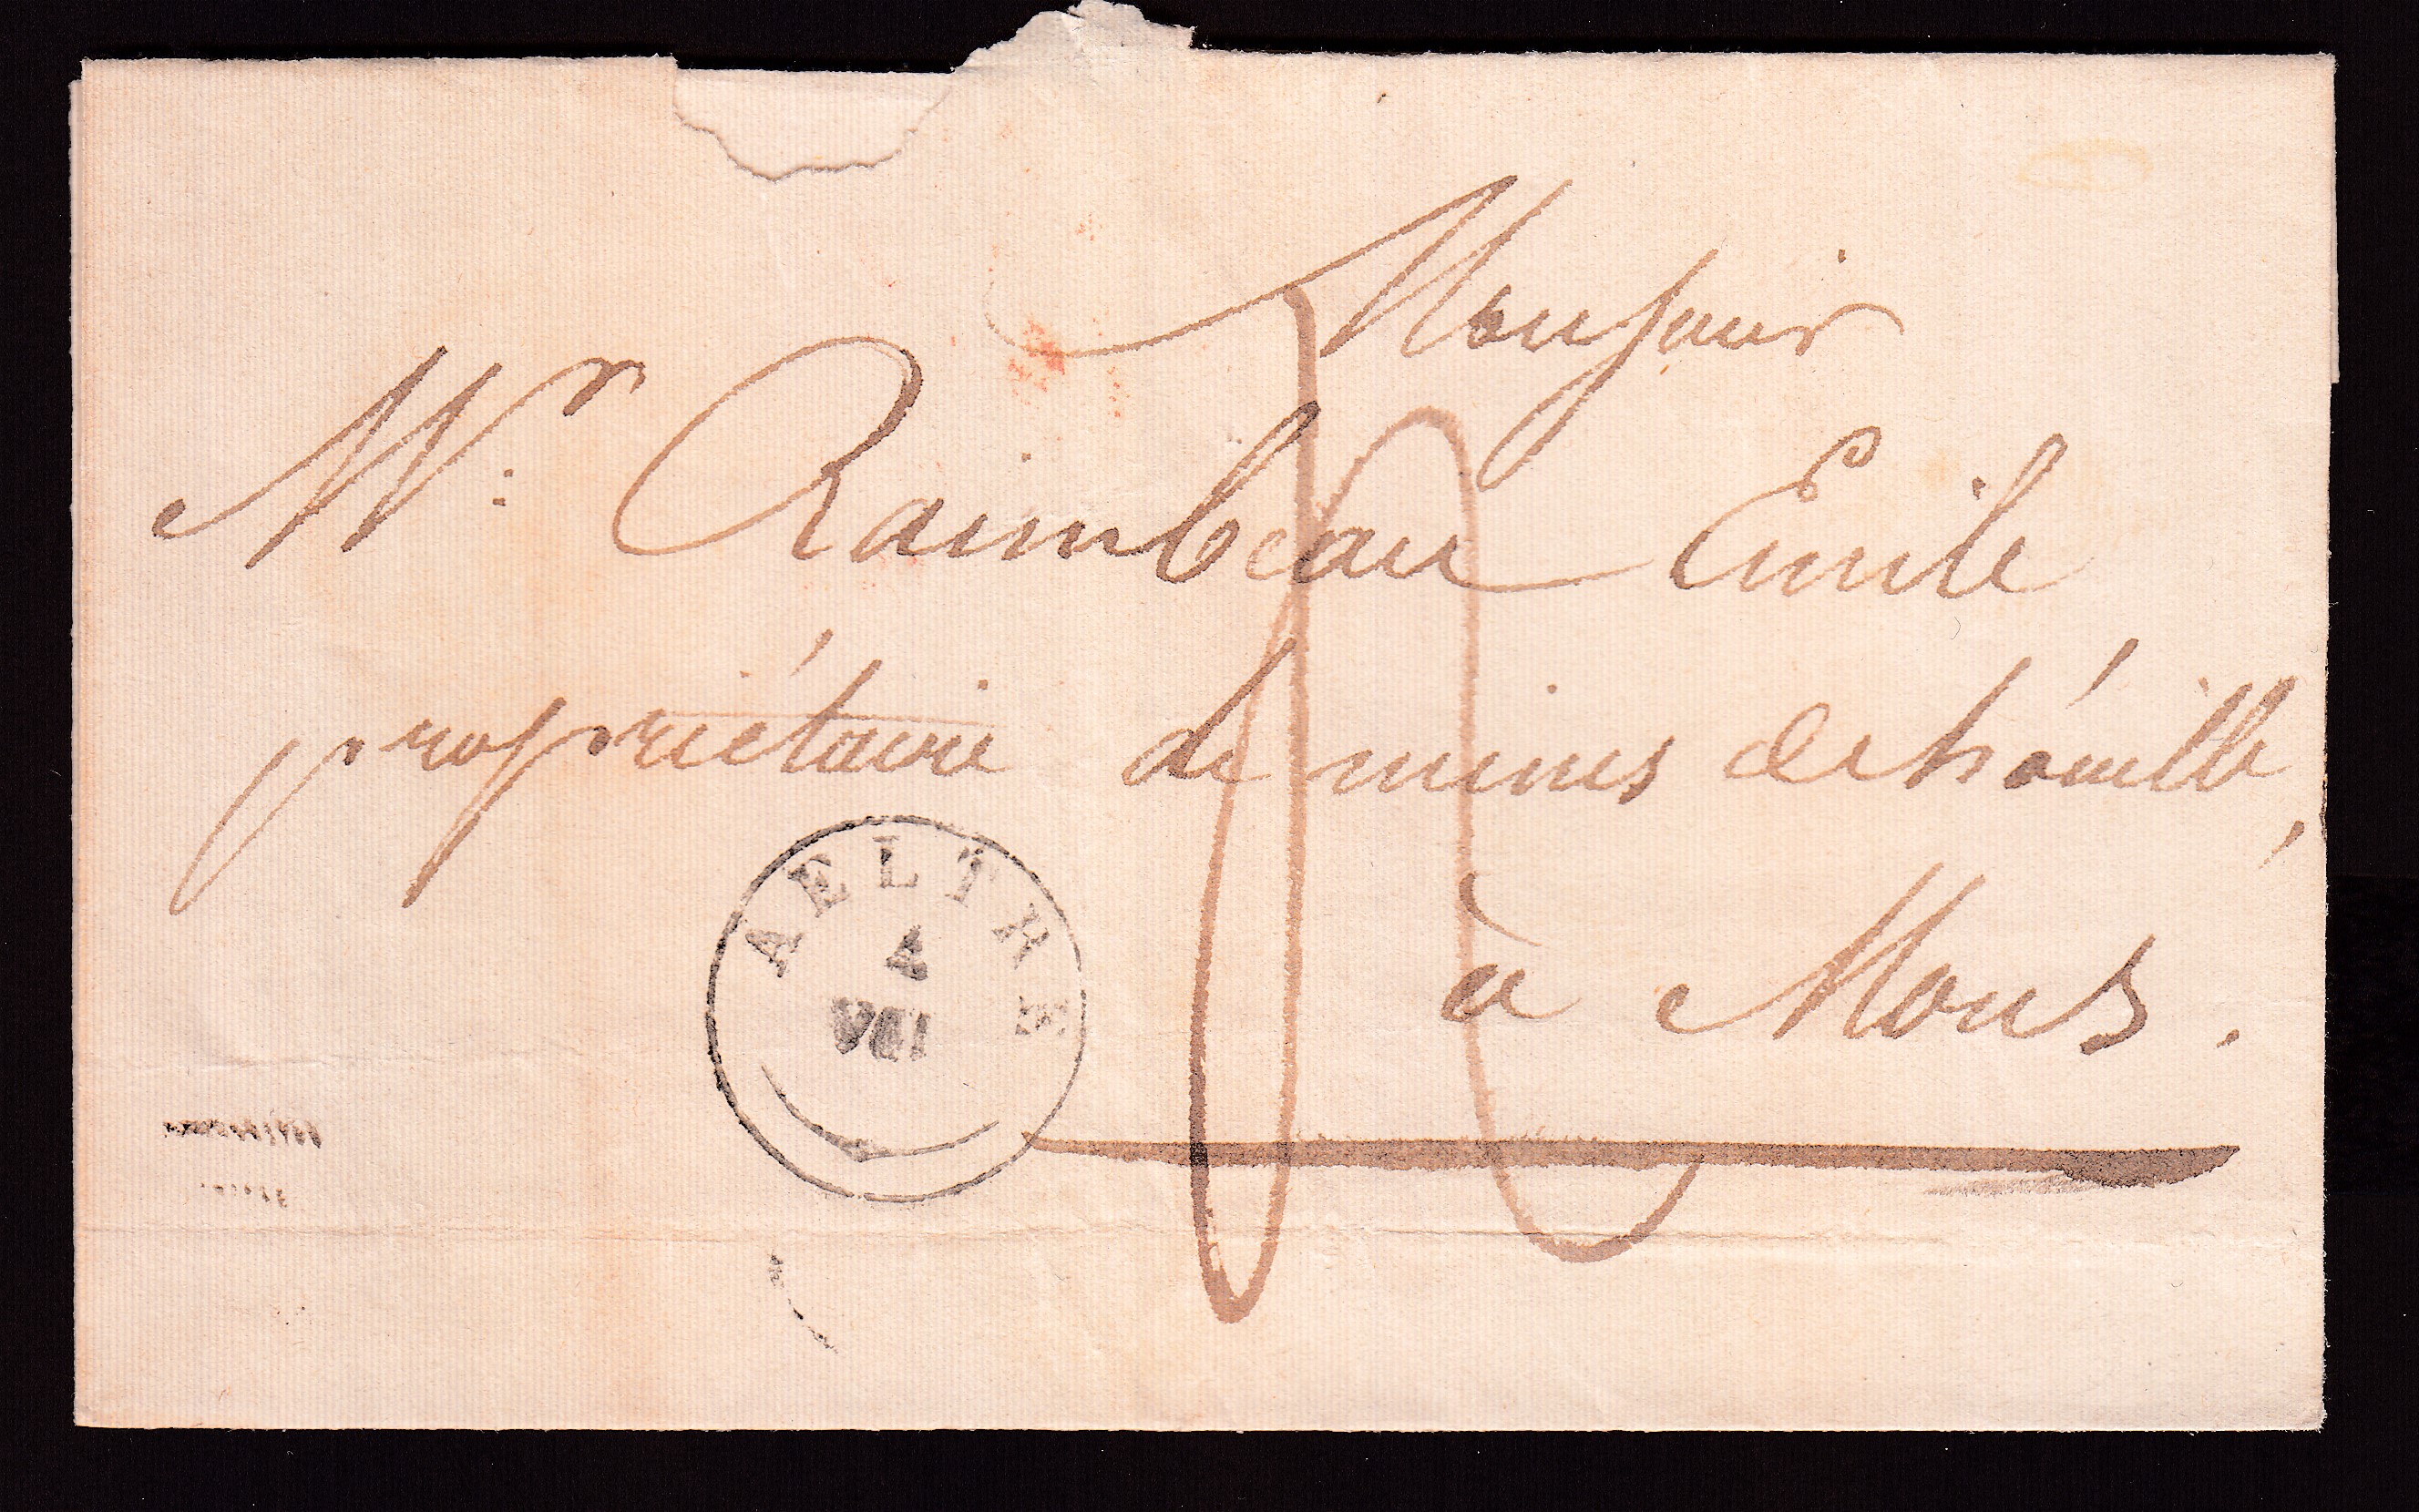 Monsieur
Mr: Raimbeau Emile
propriétaire de mines de houille,
à Mons.
AELTRE
4
VIII